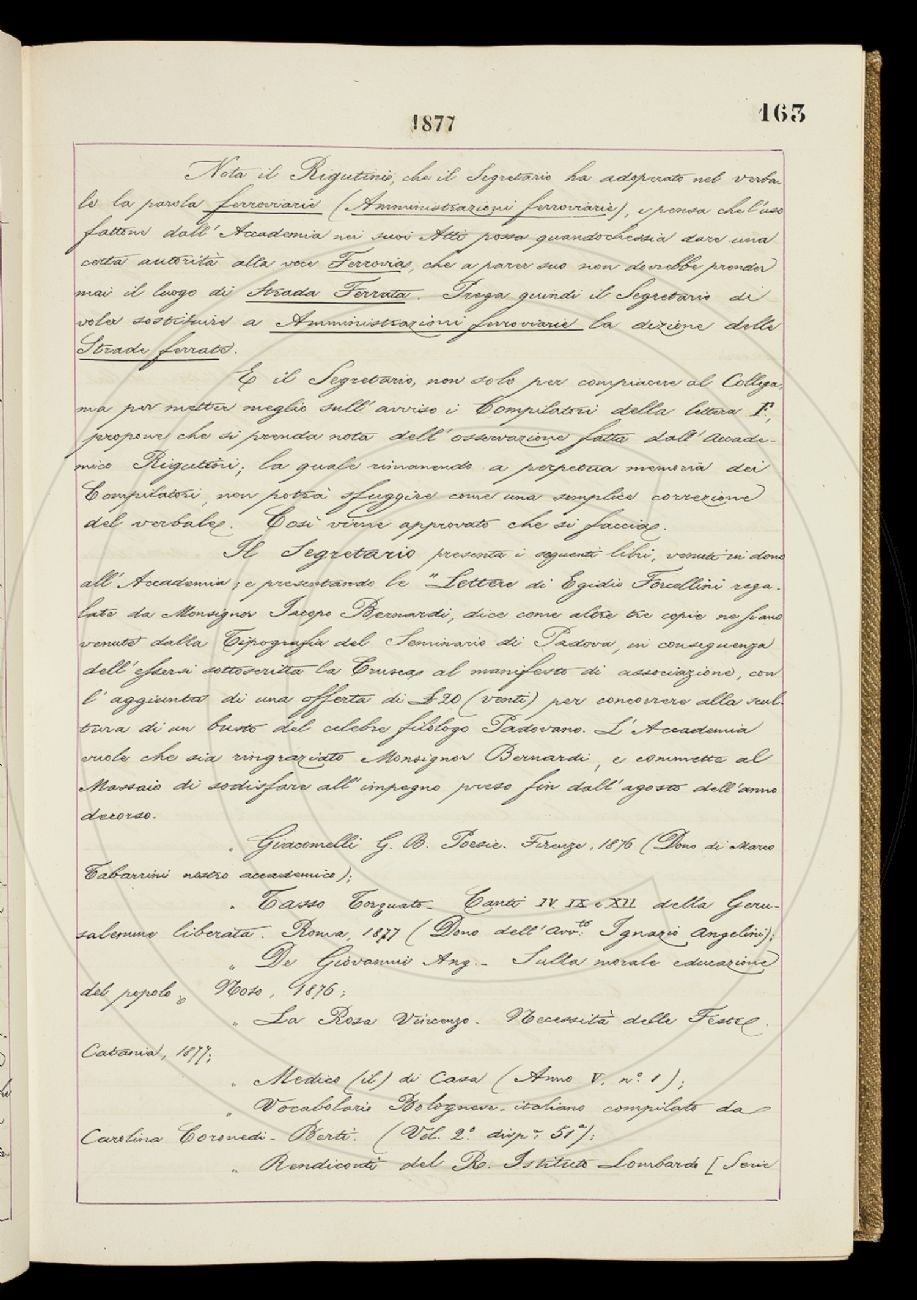 1877
163
Nota il Rigutini, che il Segretario ha adoperato nel verba-
le la parola ferroviarie (Amministrazioni ferroviarie), e pensa che l'uso
fattone dall'Accademia nei suoi Atti possa quandochessia dare una
certa autorità alla voce Ferrovia, che a parer suo non dovrebbe prender
mai il luogo di Strada Ferrata. Prega quindi il Segretario di
voler sostituire a Amministrazioni ferroviarie la dizione delle
Strade ferrate.
E il Segretario, non solo per compiacere al Collega,
ma per metter meglio sull'avviso i Compilatori della lettera F,
propone che si prenda nota dell'osservazione fatta dall'Accade-
mico Rigutini; la quale rimanendo a perpetua memoria dei
Compilatori, non potrà sfuggire come una semplice correzione
del verbale. Così viene approvato che si faccia.
Il Segretario presenta i seguenti libri, venuti in dono
all'Accademia; e presentando le "Lettere di Egidio Forcellini rega-
late da Monsignor Jacopo Bernardi, dice come altre tre copie ne siano
venute dalla Tipografia del Seminario di Padova, in conseguenza
dell'essersi sottoscritta la Crusca al manifesto di associazione, con
l'aggiunta di una offerta di £ 20 (venti) per concorrere alla scul-
tura di un busto del celebre filologo Padovano. L'Accademia
vuole che sia ringraziato Monsignor Bernardi, e commette al
Massaio di sodisfare all'impegno preso fin dall'agosto dell'anno
decorso.
" Giacomelli G. B. Poesie. Firenze, 1876 (Dono di Marco
Tabarrini nostro accademico);
" Tasso Torquato. Canti IV. IX e XII della Geru-
salemme liberata. Roma, 1877 (Dono dell'Avv.to Ignazio Angelini);
" De Giovanni Ang. - Sulla morale educazione
del popolo. Noto, 1876;
" La Rosa Vincenzo. Necessità delle Feste.
Catania, 1877;
" Medico (il) di Casa (Anno V. n.° 1);
" Vocabolario Bolognese-italiano compilato da
Carolina Coronedi-Berti. (Vol. 2.° disp.ª 51ª);
" Rendiconti del R. Istituto Lombardo [Serie